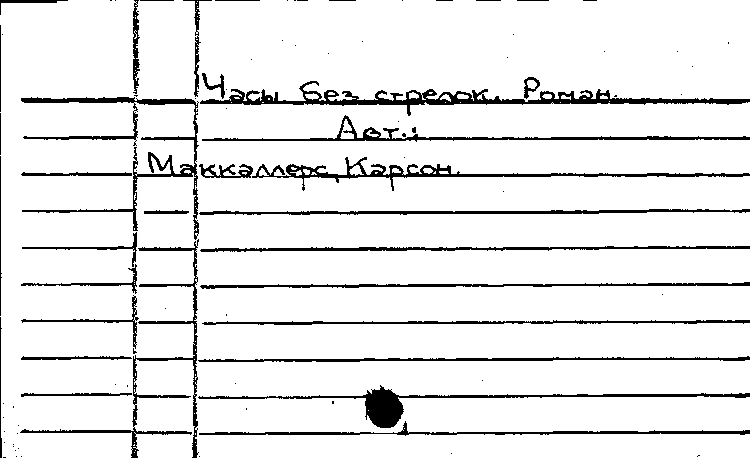 Часы без стрелок. Роман.
Авт.:
Маккаллерс, Карсон.